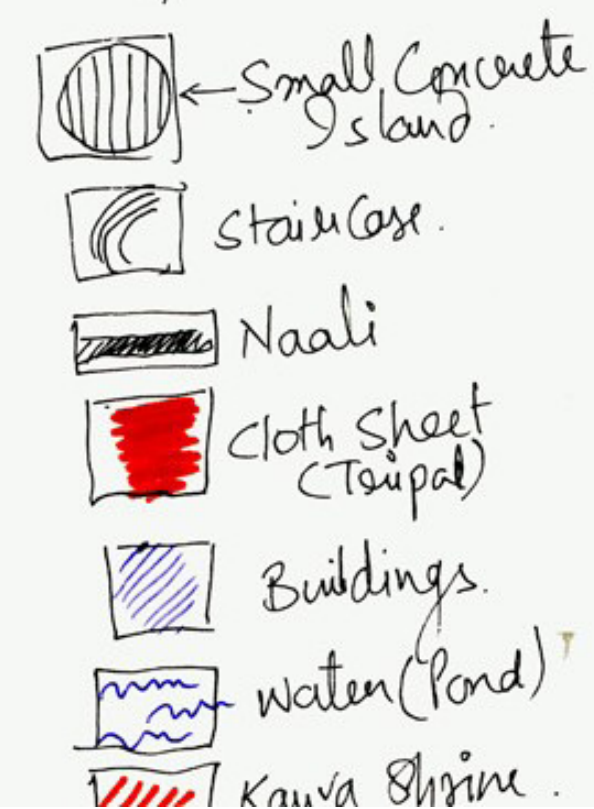 Small Concrete
Island.
Staircase.
Naali
Cloth Sheet
(Tripal)
Buildings.
Water (Pond)
Kauva Shrine.